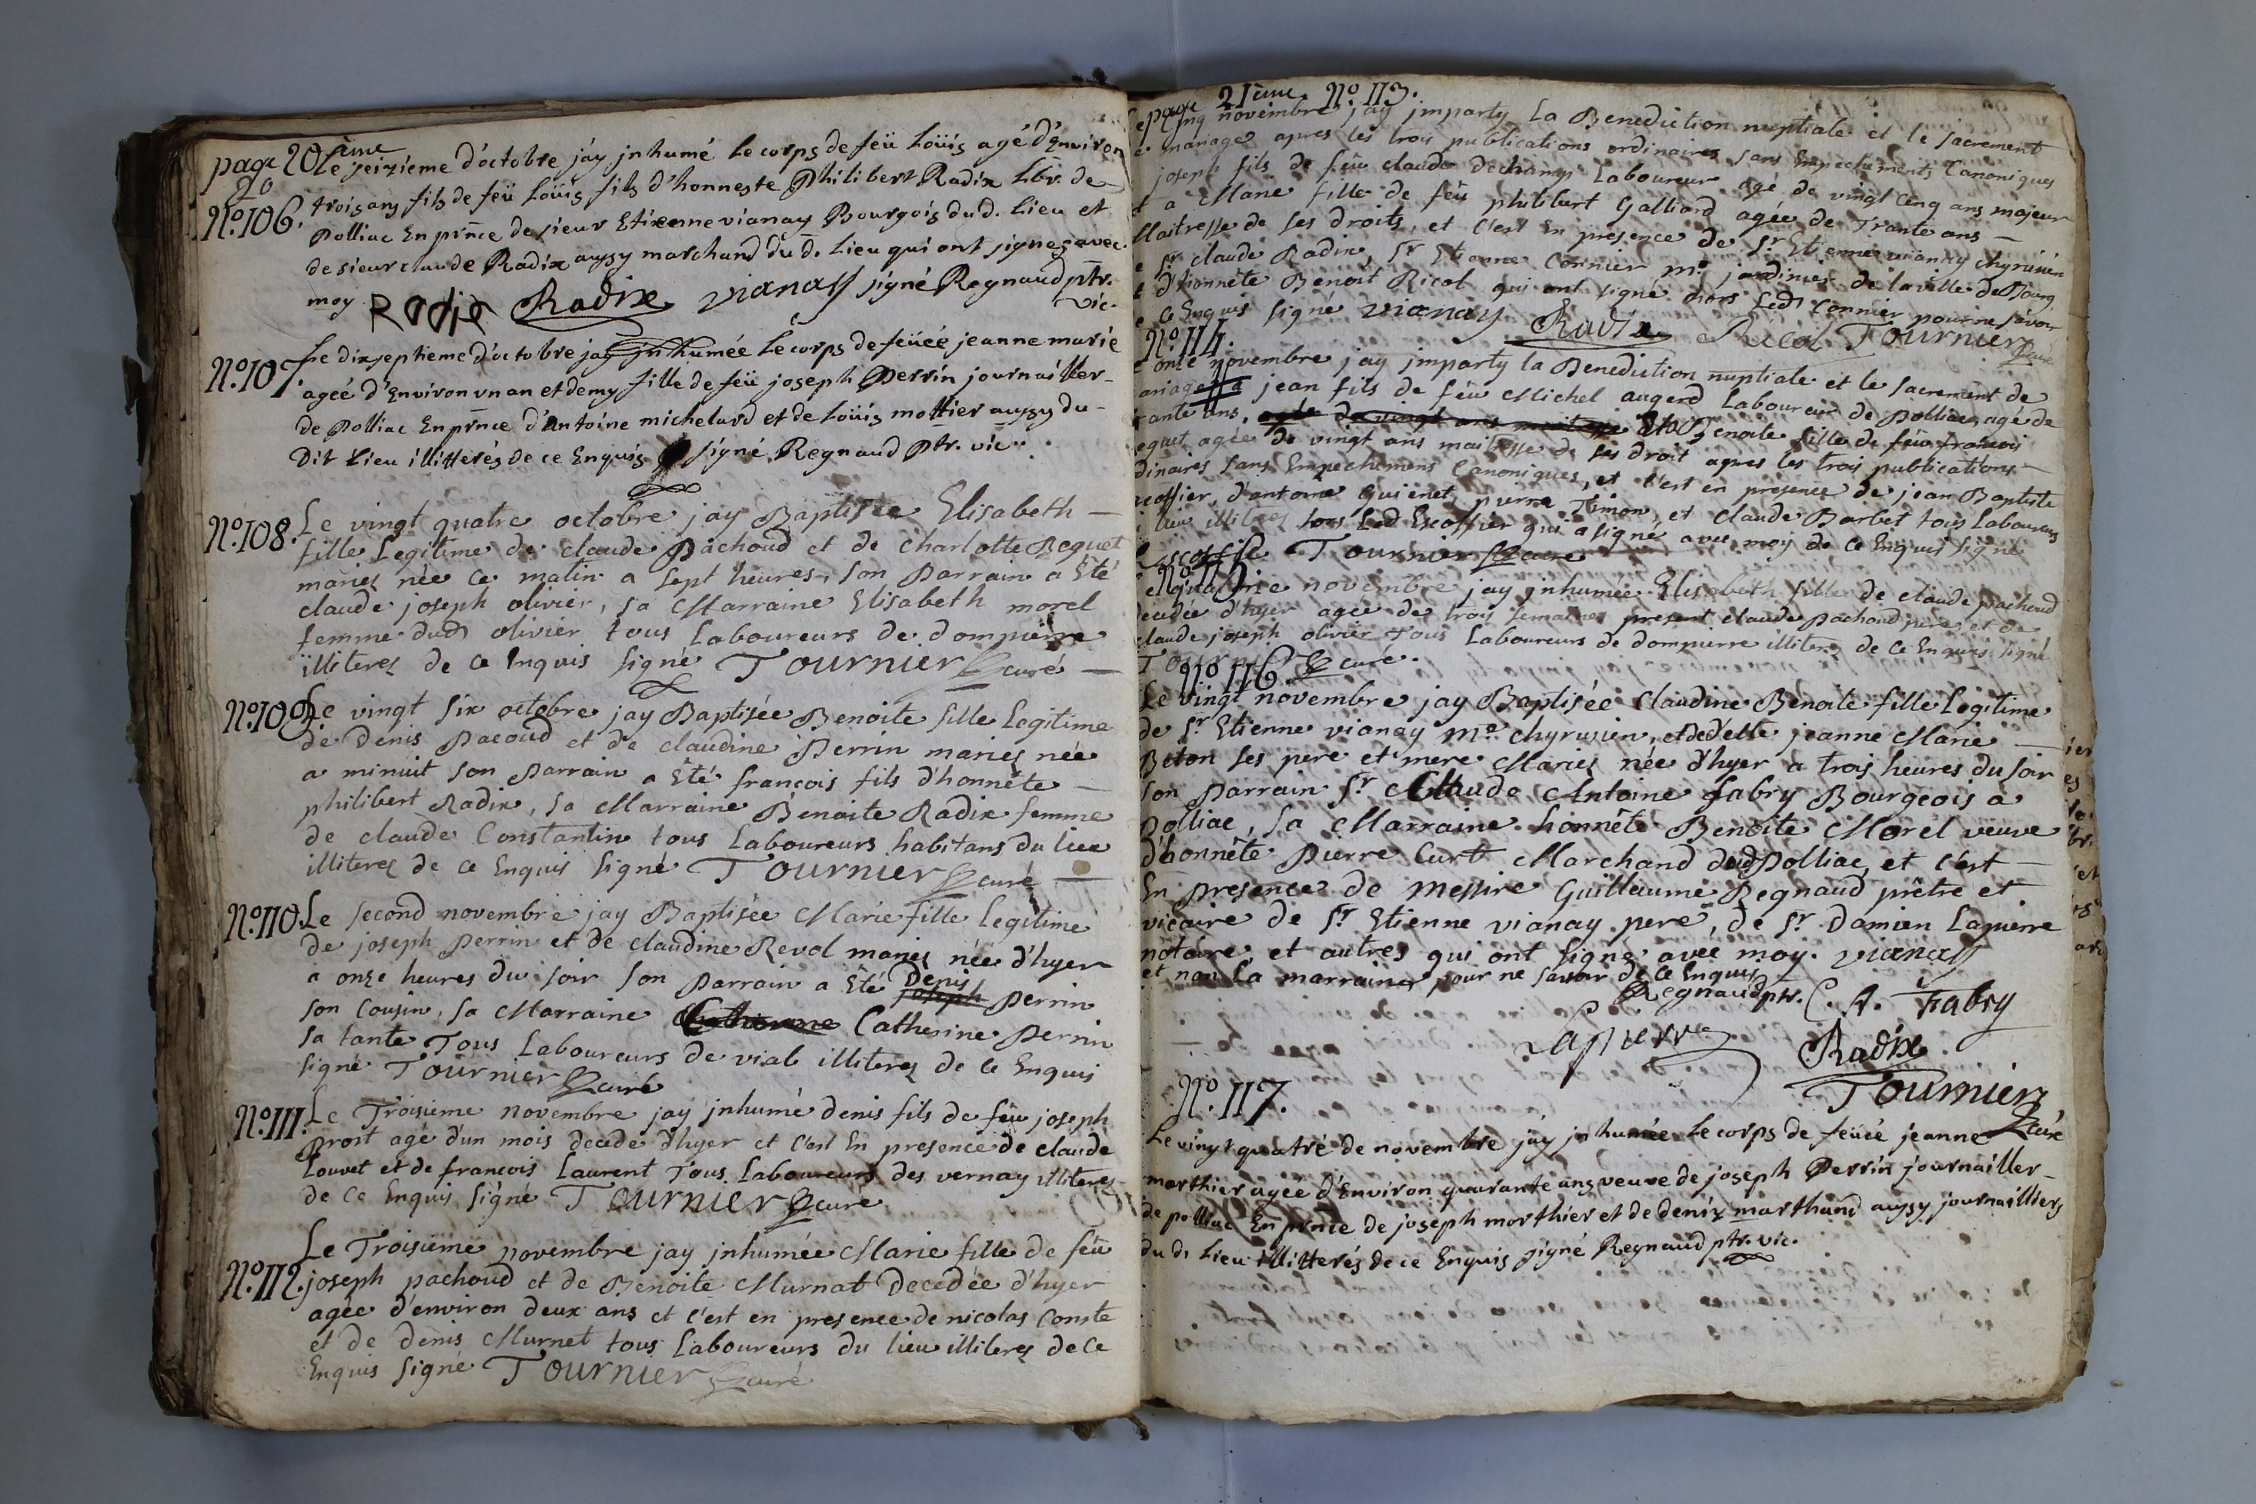 page 20ème
20
Le seizième d'octobre j'ay jnhumé le corps de feü Loüis agé d'Environ
N°.106. trois ans fils de feü Loüis fils d'honneste Philibert Radix libr. de
Polliac En prnce de sieur Etienne vianay Bourgois du d. Lieu et
de sieur claude Radix aussy marchand du d. Lieu qui ont signes avec
moy Radix Radix vianay signé Regnaud ptr.
vic.
N°.107. Le dixseptieme d'octobre jay jnhumée le corps de feüée jeanne marie
agée d'Environ un an et demy fille de feü joseph Perrin journaillier
de Polliac En prnce d'Antoine michelard et de Loüis mottier aussy du
Dit Lieu illitterés de ce Enquis signé Regnaud ptr. vic.
N°.108. Le vingt quatre octobre jay Baptisée Elisabeth
fille Legitime de claude Pachoud et de charlotte Boquet
mariez née ce matin a sept heures, son Parrain a Eté
claude joseph olivier, sa Marraine Elisabeth morel
femme dud olivier tous Laboureurs de dompierre
illiterez de ce Enquis signé Tournier curé
N°.109. Le vingt six octobre jay Baptisée Benoite fille Legitime
de Denis Pacoud et de claudine Perrin mariez née
a minuit son Parrain a Eté françois fils d'honnête
philibert Radix, sa Marraine Benoite Radix femme
de claude Constantin tous Laboureurs habitans du lieu
illiterez de ce Enquis signé Tournier curé
N°.110. Le second novembre jay Baptisée Marie fille legitime
de joseph Perrin et de claudine Revol mariez née d'hyer
a onze heures du soir son Parrain a Eté Denis joseph Perrin
son Cousin, sa Marraine Catherine Perrin
sa tante Tous Laboureurs de vial illiterez de ce Enquis
signé Tournier curé
N°.111. Le Troisieme novembre jay jnhumé denis fils de feu joseph
Prost agé d'un mois decede d'hyer et c'est En presence de claude
Louvet et de françois Laurent Tous Laboureurs des vernay illiterez
de ce Enquis signé Tournier curé
Le Troisieme novembre jay jnhumée Marie fille de feü
N°.112. joseph pachoud et de Benoite Murnat Decedée d'hyer
agée d'environ deux ans et c'est en presence de nicolas Conste
et de denis Murnet tous Laboureurs du lieu illiterez de ce
Enquis signé Tournier curé
page 21ème N°.113.
cinq novembre jay jmparty La Benediction nuptiale et le sacrement
mariage apres les trois publications ordinaires sans Empechements Canoniques
joseph fils de feu claude Dechamp Laboureur agé de vingt cinq ans majeur
et a Marie fille de feu philibert Galliard agée de Trante ans
Maitresse de ses droits, et c'est En presence de Sr. Etienne vianay chyrurien
Sr claude Radix, Sr Etienne Connier me. jardinier de la ville de Bourg
d'honnête Benoit Ricol qui ont signé hors led Connier pour ne savoir
ce Enquis signé vianay Radix Ricol Tournier curé
N°.114.
onze novembre jay jmparty la Benediction nuptiale et le sacrement de
mariage a jean fils de feu Michel augerd Laboureur de Polliac, agé de
trante ans, Et a Benoite fille de feu francois
agée de vingt ans maitresse de ses droit apres les trois publications
ordinaires sans Empechemens Canoniques, et c'est en presence de jean Baptiste
Escoffier, d'antoine Guienet, pierre Timon, et claude Barbet tous Laboureurs
lieu illiterez hors Led Escoffier qui a signé avec moy de ce Enquis signé
Escoffie Tournier curé
N°.115.
quatorze novembre jay jnhumée Elisabeth fille de claude pachoud
decedée d'hyer agée de trois semaines present claude Pachoud pere et de
claude joseph olivier tous Laboureurs de dompierre illiterez de ce Enquis signé
Tournier curé.
N°.116
Le vingt novembre jay Baptisée Claudine Benoite fille Legitime
de Sr. Etienne vianay me chyrurien, et de delle jeanne Marie
Beton ses pere et mere Mariés née d'hyer a trois heures du soir
son Parrain Sr. Claude Antoine fabry Bourgeois a
Polliac, sa Marraine honnête Benoite Morel veuve
d'honnête Pierre Curt Marchand dud Polliac, et c'est
En presence de Messire Guillaume Regnaud prêtre et
vicaire de Sr Etienne vianay pere, de Sr. Damien Lapierre
notaire et autres qui ont signé avec moy. vianay
et non la marraine pour ne savoir de ce Enquis
Regnaud ptr. C. A. Fabry
Lapierre
Radix
Tournier
curé
N°.117.
Le vingt quatré de novembre jáy jnhumée le corps de feüée jeanne
morthier agée d'Environ quarante ans veuve de joseph Perrin journaillier
de polliac En prnce de joseph morthier et de deniz marthand aussy journailliers
du d. Lieu illitterés de ce Enquis signé Regnaud ptr. vic.